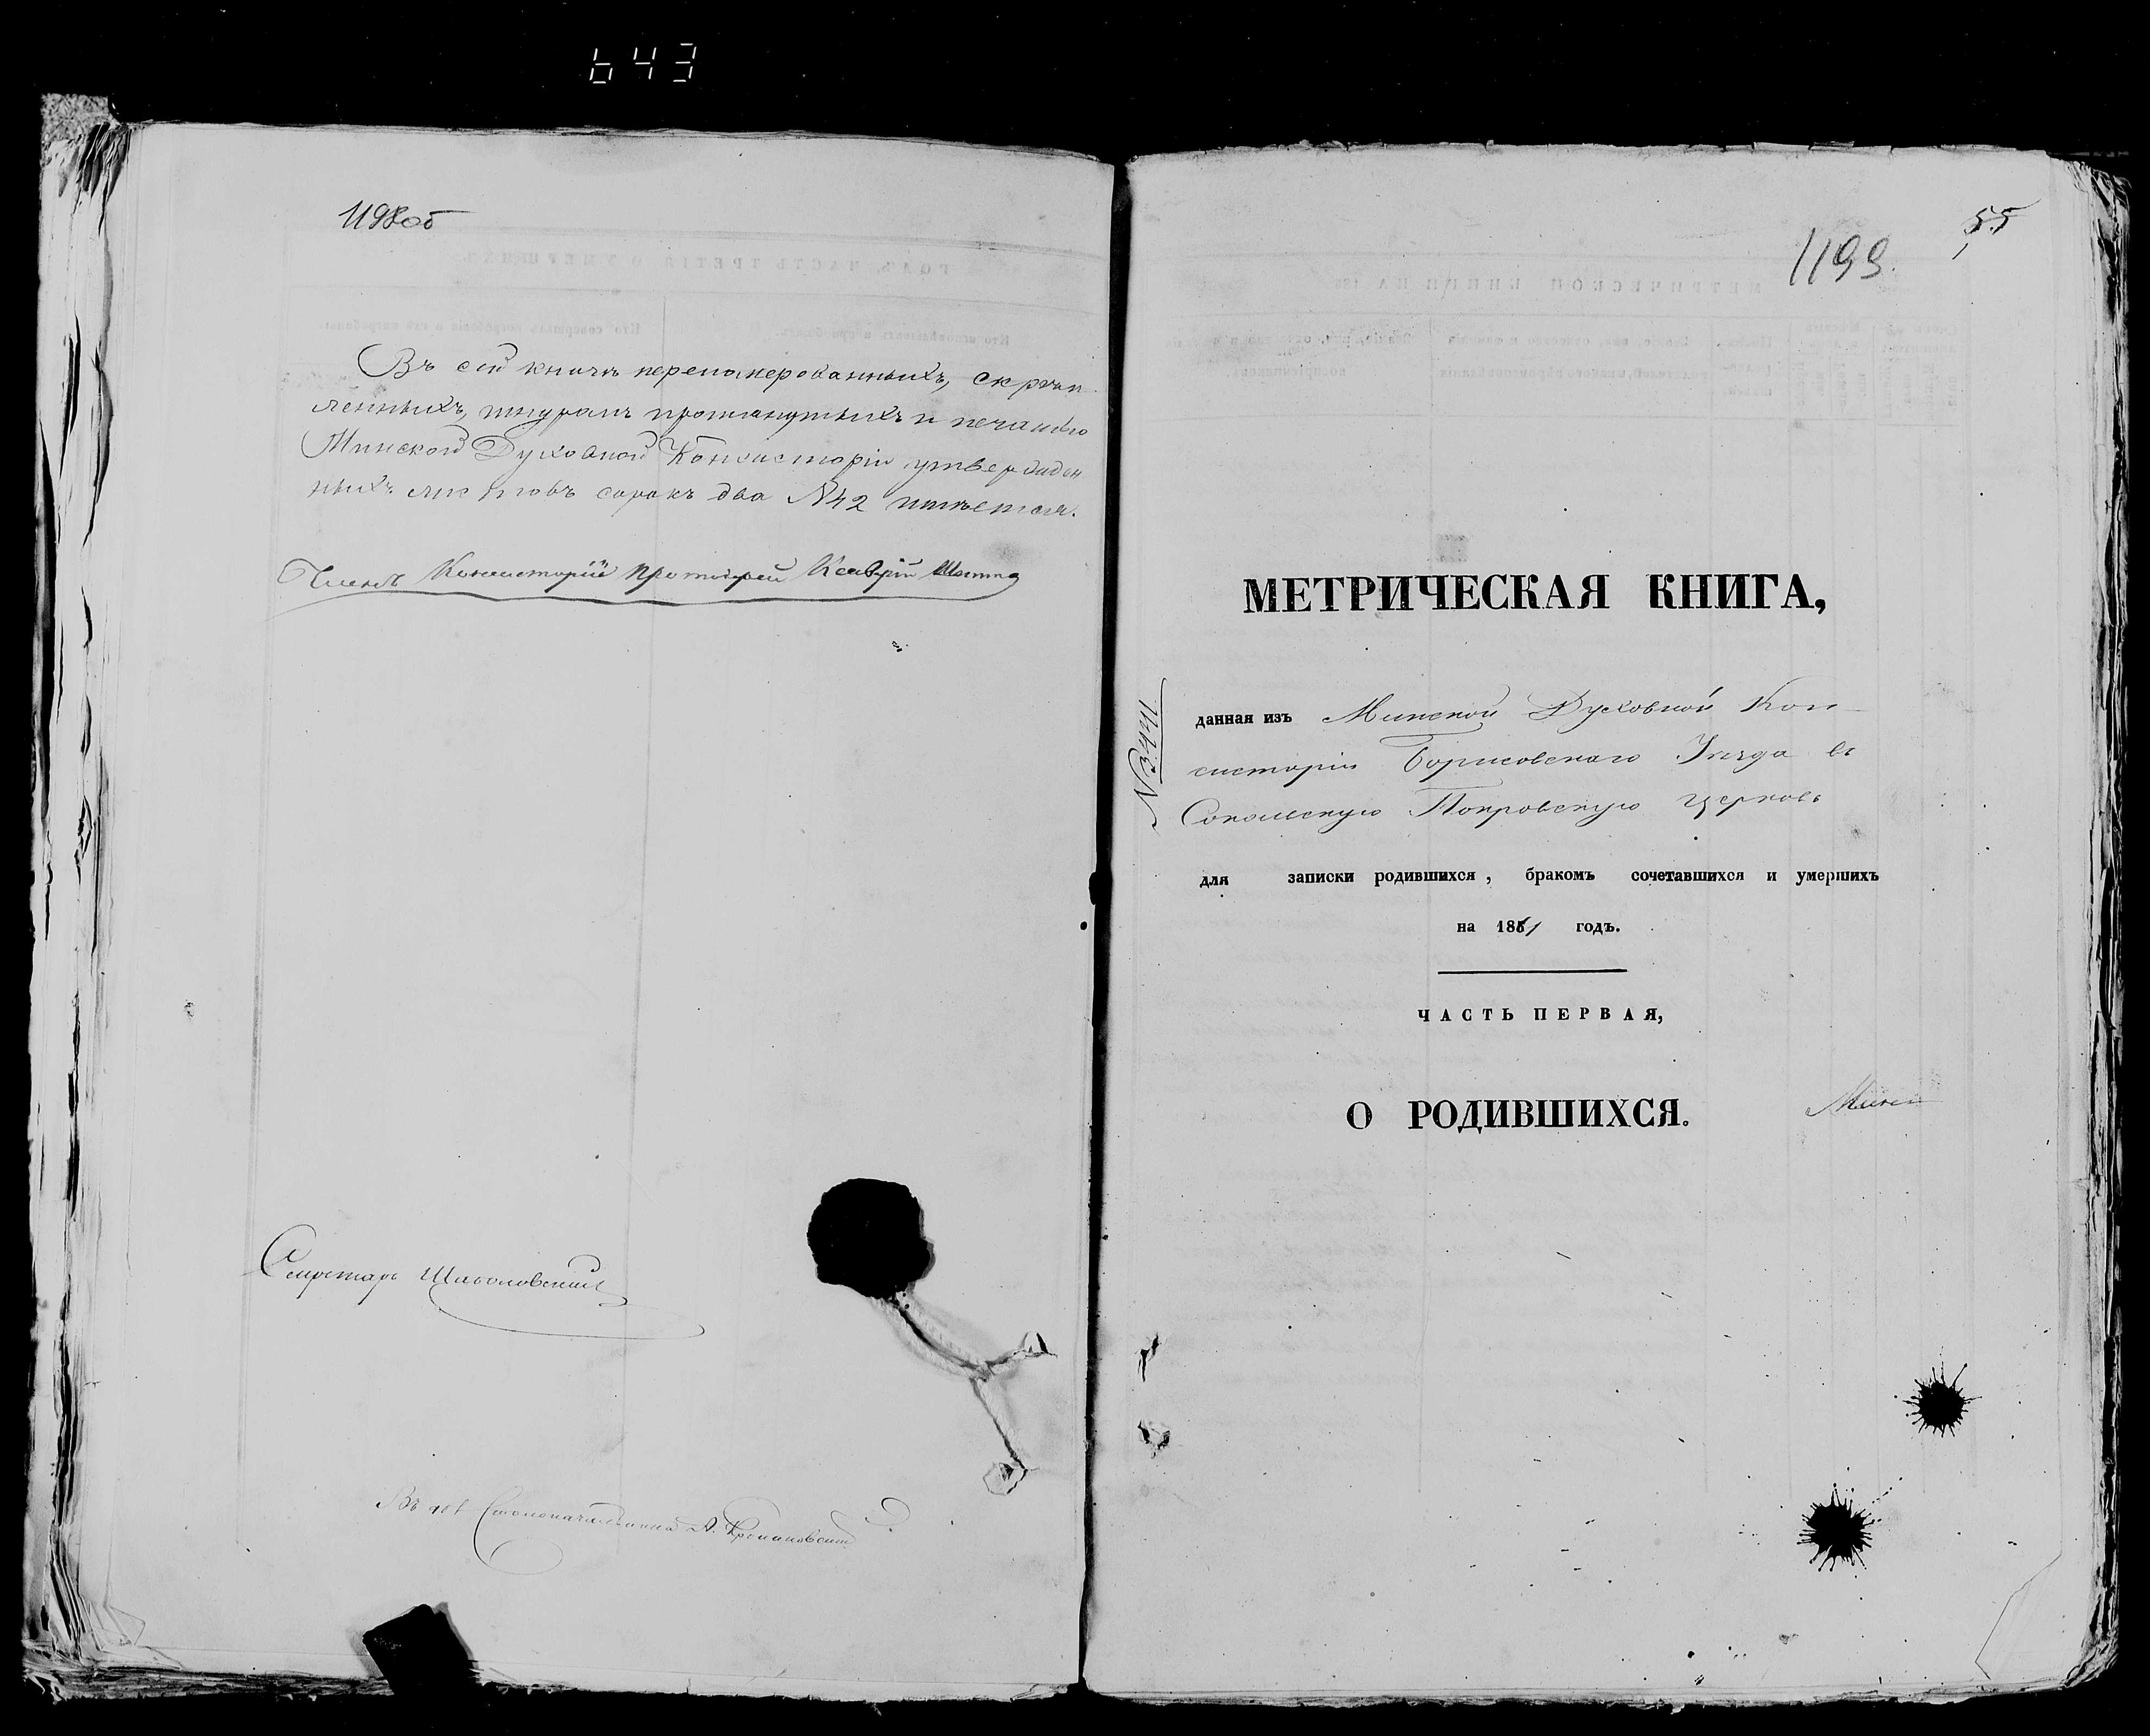 643
1198об
Въ сей книгѣ перенумерованныхъ, скрѣп
ленныхъ, шнуромъ протянутыхъ и печатью
Минской Духовной Консисторіи утвержден
ныхъ листовъ сорокъ два №42 имѣется.
Членъ Консисторіи Протоіерей
Секретарь
Столоначальника
55
1199.
МЕТРИЧЕСКАЯ КНИГА,
№ 3441
данная изъ Минской Духовной Кон
систоріи Борисовскаго Уѣзда въ
Сокольскую Покровскую церковь
для записки родившихся, бракомъ сочетавшихся и умершихъ
на 1861 годъ.
ЧАСТЬ ПЕРВАЯ,
О РОДИВШИХСЯ.